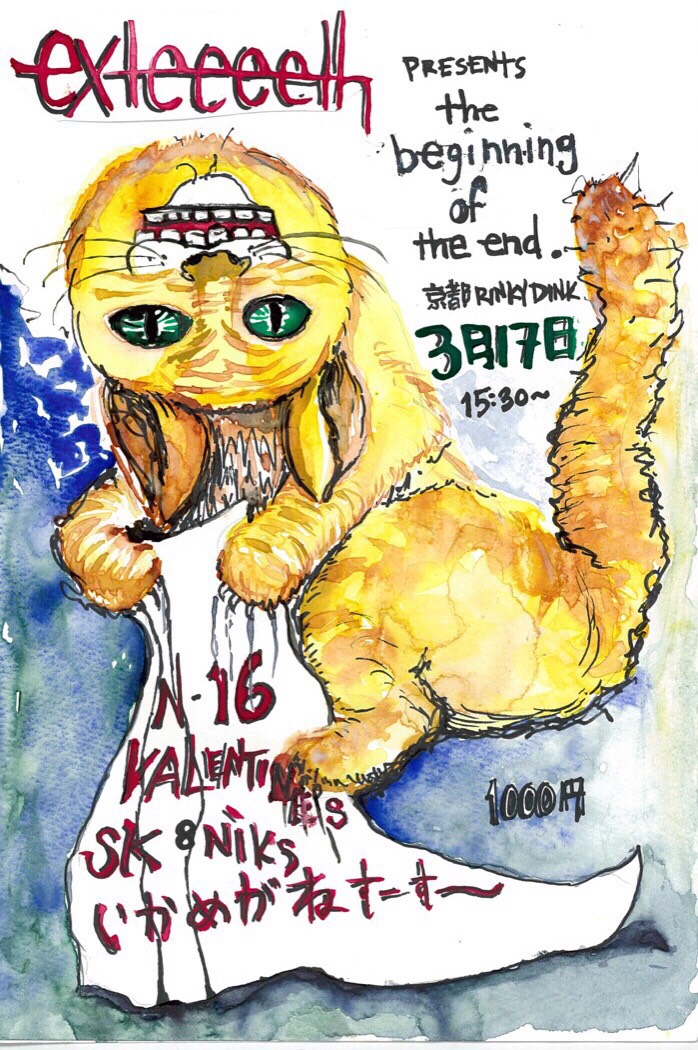 exteeeeth
PRESENTS
the
beginning
of
the end.
京都 RINKY DINK
3月17日
15:30~
N-16
VALENTINE'S
SK8NiKS
いかめがねすーす〜
1000円